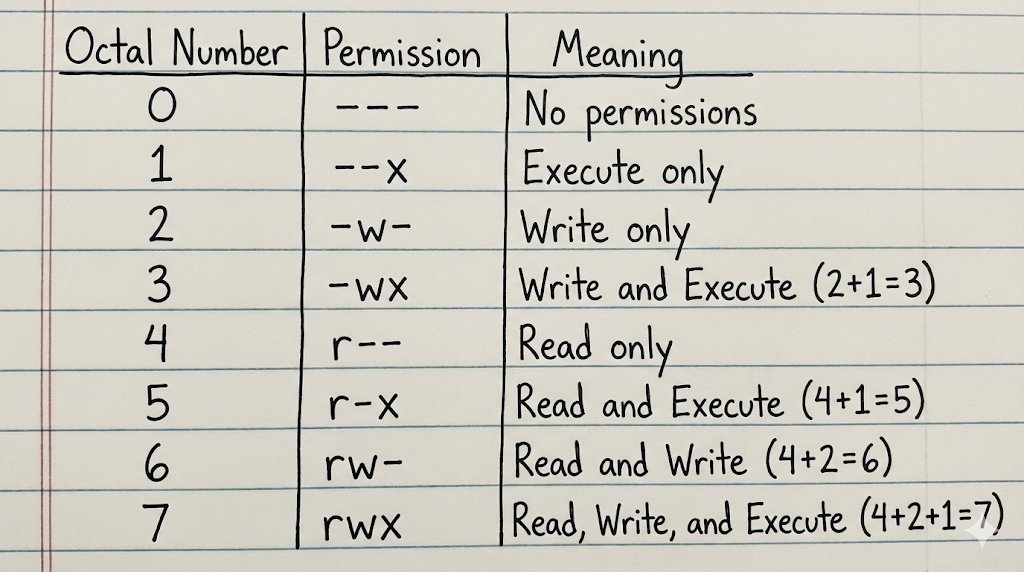 Octal Number Permission Meaning
0 --- No permissions
1 --x Execute only
2 -w- Write only
3 -wx Write and Execute (2+1=3)
4 r-- Read only
5 r-x Read and Execute (4+1=5)
6 rw- Read and Write (4+2=6)
7 rwx Read, Write, and Execute (4+2+1=7)